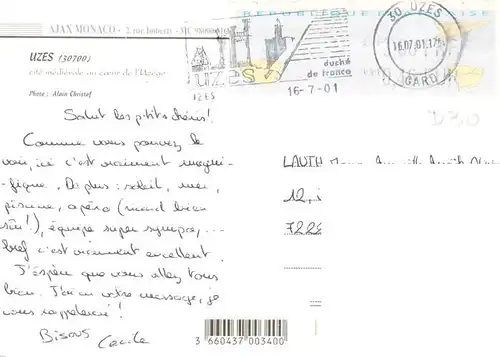 AJAX MONACO - 2, rue
UZES (30700)
cité médiévale au cœur de l'Uzège
Photo : Alain Christof
RÉPUBLIQUE FRANÇAISE
30 UZES
16.07.01.17
GARD
uzès
UZES
duché
de france
16-7-01
D30
Salut les p'tits chéris!
Comme vous pouvez le
voir, ici c'est vraiment magni-
fique. De plus : soleil, mer,
piscine, apéro (mard bien
sûr!), équipe super sympa, ...
bref c'est vraiment excellent.
J'espère que vous allez tous
bien. J'ai eu votre message, je
vous rappelerai!
Bisous
Cécile
LAUTH
12,
722
3 660437 003400